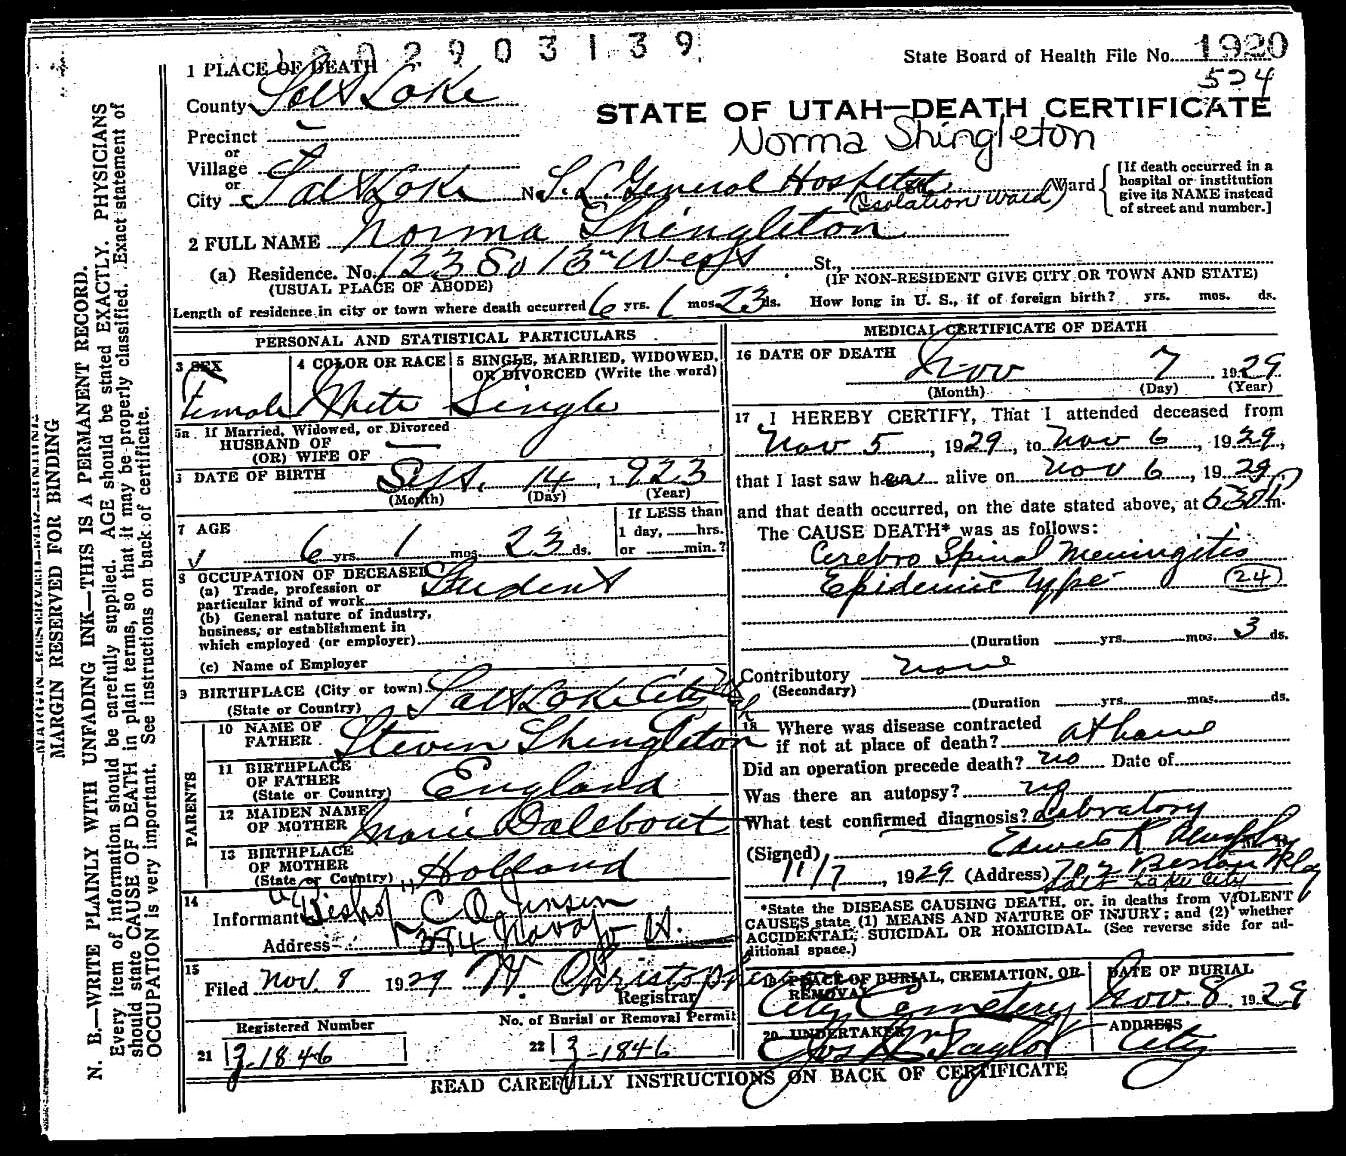 2903139
State Board of Health File No. 1920
524
1 PLACE OF DEATH
County Salt Lake
STATE OF UTAH—DEATH CERTIFICATE
Norma Shingleton
Precinct
or
Village
or
City Salt Lake No. S. L. General Hospital Ward
(Isolation Ward)
[If death occurred in a
hospital or institution
give its NAME instead
of street and number.]
2 FULL NAME Norma Shingleton
(a) Residence. No. 123 So 13th West St.,
(USUAL PLACE OF ABODE) (IF NON-RESIDENT GIVE CITY OR TOWN AND STATE)
Length of residence in city or town where death occurred 6 yrs. 1 mos. 23 ds. How long in U. S., if of foreign birth? yrs. mos. ds.
PERSONAL AND STATISTICAL PARTICULARS
3 SEX
Female
4 COLOR OR RACE
White
5 SINGLE, MARRIED, WIDOWED,
OR DIVORCED (Write the word)
Single
5a If Married, Widowed, or Divorced
HUSBAND OF
(OR) WIFE OF
DATE OF BIRTH Sept. 14, 1923
(Month) (Day) (Year)
7 AGE
6 yrs. 1 mos. 23 ds.
If LESS than
1 day, hrs.
or min.?
8 OCCUPATION OF DECEASED
(a) Trade, profession or
particular kind of work Student
(b) General nature of industry,
business, or establishment in
which employed (or employer)
(c) Name of Employer
9 BIRTHPLACE (City or town) Salt Lake City
(State or Country)
PARENTS
10 NAME OF
FATHER Steven Shingleton
11 BIRTHPLACE
OF FATHER
(State or Country) England
12 MAIDEN NAME
OF MOTHER Marie Dalebout
13 BIRTHPLACE
OF MOTHER
(State or Country) Holland
14
Informant Bishop C O Jensen
Address 384 Navajo St.
15
Filed Nov. 8 1929 W. Christopher
Registrar
Registered Number
21 J-1846
No. of Burial or Removal Permit
22 J-1846
MEDICAL CERTIFICATE OF DEATH
16 DATE OF DEATH
Nov 7 1929
(Month) (Day) (Year)
17 I HEREBY CERTIFY, That I attended deceased from
Nov 5, 1929, to Nov 6, 1929,
that I last saw her alive on Nov 6, 1929
and that death occurred, on the date stated above, at 630 m.
The CAUSE DEATH* was as follows:
Cerebro Spinal Meningitis
Epidemic type (24)
(Duration yrs. mos. 3 ds.
Contributory none
(Secondary)
(Duration yrs. mos. ds.
18 Where was disease contracted
if not at place of death? at home
Did an operation precede death? no Date of
Was there an autopsy? no
What test confirmed diagnosis? Labratory
(Signed)
11/7, 1929 (Address) 702 Boston
Salt Lake City
*State the DISEASE CAUSING DEATH, or, in deaths from VIOLENT
CAUSES state (1) MEANS AND NATURE OF INJURY; and (2) whether
ACCIDENTAL, SUICIDAL OR HOMICIDAL. (See reverse side for ad-
ditional space.)
19 PLACE OF BURIAL, CREMATION, OR
REMOVAL
City Cemetery
DATE OF BURIAL
Nov. 8 1929
20 UNDERTAKER
Jos Wm Taylor
ADDRESS
City
READ CAREFULLY INSTRUCTIONS ON BACK OF CERTIFICATE
MARGIN RESERVED FOR BINDING
N. B.—WRITE PLAINLY WITH UNFADING INK—THIS IS A PERMANENT RECORD.
Every item of information should be carefully supplied. AGE should be stated EXACTLY. PHYSICIANS
should state CAUSE OF DEATH in plain terms, so that it may be properly classified. Exact statement of
OCCUPATION is very important. See instructions on back of certificate.